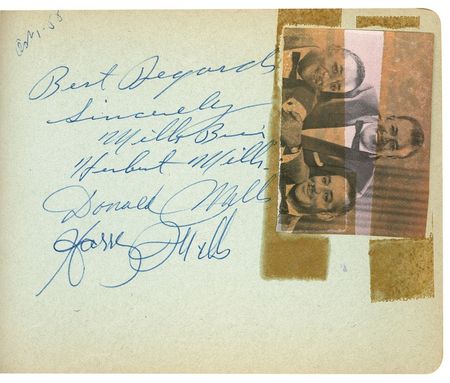 Oct 1-55
Best Regards
Sincerely
Mills Bros
Herbert Mills
Donald Mills
Harry Mills